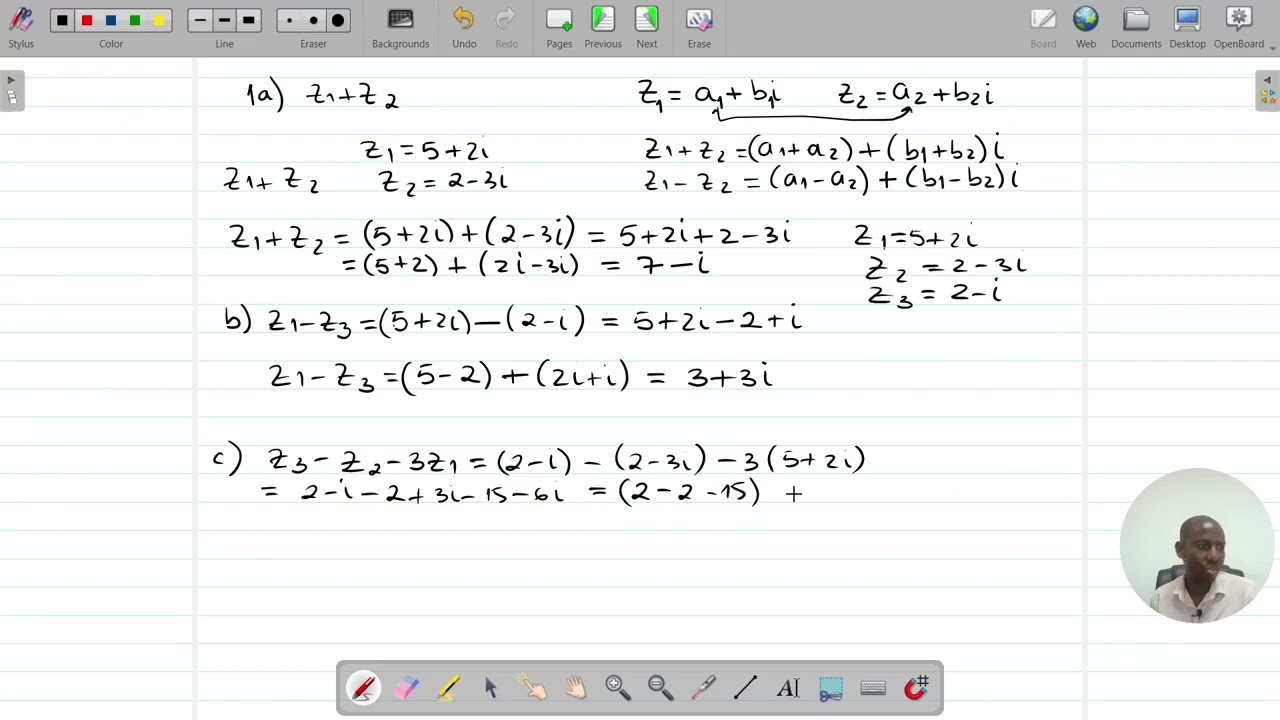 Stylus Color Line Eraser Backgrounds Undo Redo Pages Previous Next Erase Board Web Documents Desktop OpenBoard
1a) z1+z2
z1 = a1 + b1i z2 = a2 + b2i
z1 = 5+2i
z1+z2 = (a1+a2) + (b1+b2)i
z1+z2 z2 = 2-3i
z1-z2 = (a1-a2) + (b1-b2)i
z1+z2 = (5+2i)+(2-3i) = 5+2i+2-3i
=(5+2) + (2i-3i) = 7-i
z1=5+2i
z2 = 2-3i
z3 = 2-i
b) z1-z3 =(5+2i)-(2-i) = 5+2i-2+i
z1-z3 =(5-2)+(2i+i) = 3+3i
c) z3-z2-3z1 = (2-i) - (2-3i) -3(5+2i)
= 2-i-2+3i-15-6i = (2-2-15) +
AI